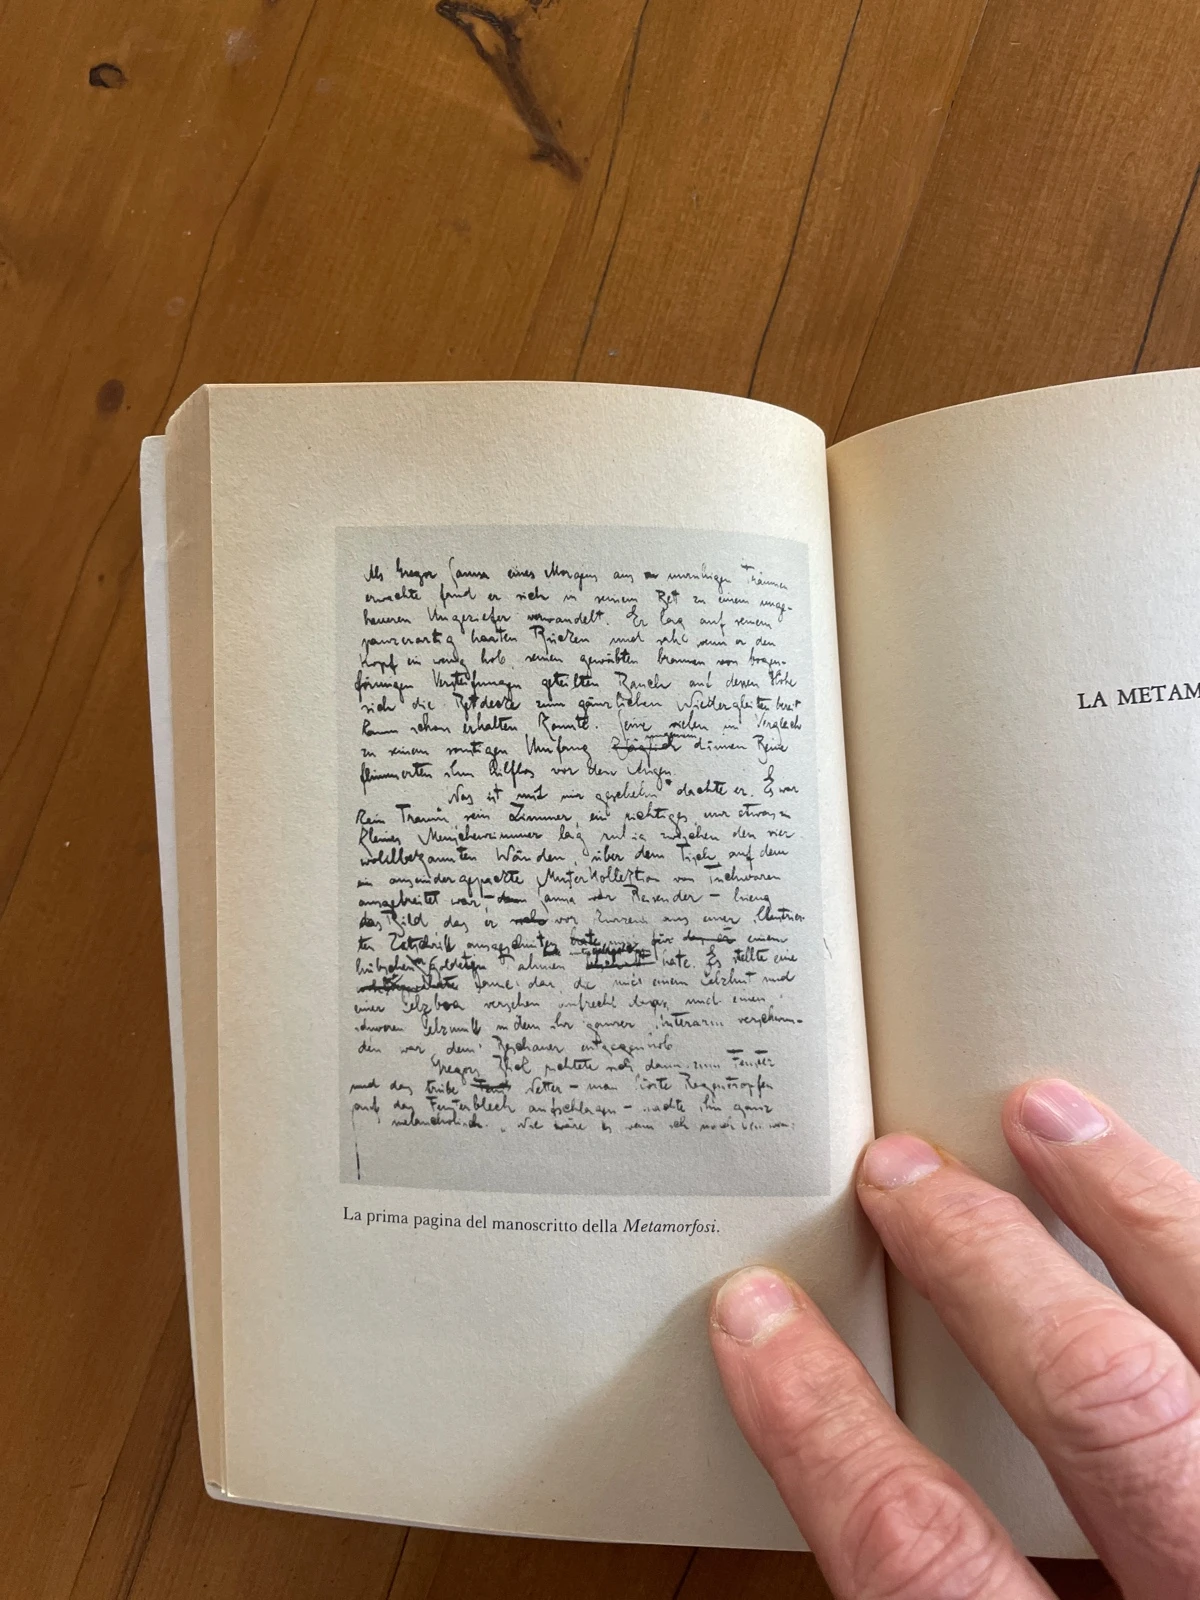 Als Gregor Samsa eines Morgens aus unruhigen Träumen
erwachte fand er sich in seinem Bet zu einem unge-
heueren Ungeziefer verwandelt. Er lag auf seinem
panzerartig harten Rücken und sah wenn er den
Kopf ein wenig hob, seinen gewölbten braunen von bogen-
förmigen Versteifungen geteilten Bauch auf dessen Höhe
sich die Betdecke zum gänzlichen Niedergleiten bereit
kaum schon erhalten konnte. Seine vielen im Vergleich
zu seinem sonstigen Umfang dünnen Beine
flimmerten ihm hilflos vor den Augen.
Was ist mit mir geschehen dachte er. Es war
kein Traum, sein Zimmer, ein richtiges nur etwas zu
kleines Menschenzimmer lag ruhig zwischen den vier
wohlbekannten Wänden, über dem Tisch, auf dem
ein auseinandergepackte Musterkollektion von Tuchwaren
ausgebreitet war – Samsa war Reisender – hieng
das Bild das er vor kurzem aus einer illustrier-
ten Zeitschrift ausgeschniten einem
hübschen
Es stellte eine
Dame dar, die mit einem Pelzhut und
einer Pelzboa versehen aufrecht dasass und einen
schweren Pelzmuff in dem ihr ganzer Unterarm verschwun-
den war, dem Beschauer entgegenhob
Gregors Blick richtete sich dann zum Fenster
und das trübe Wetter – man hörte Regentropfen
auf das Fensterblech aufschlagen – machte ihn ganz
melancholisch. „Wie wäre es wenn ich noch
La prima pagina del manoscritto della Metamorfosi.
LA METAM